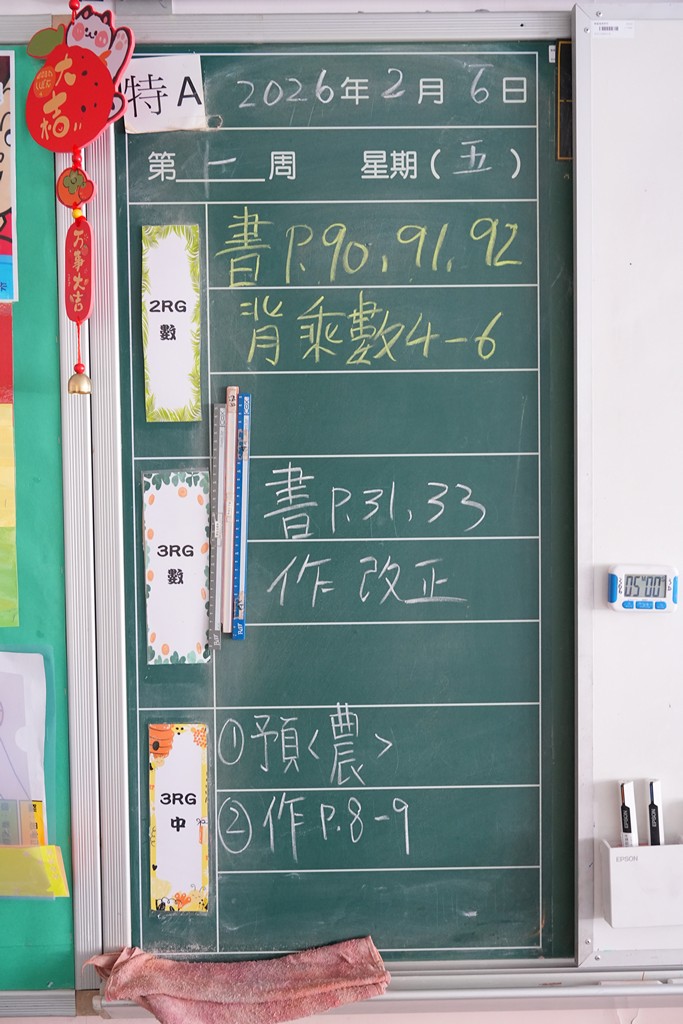 大吉
万事大吉
特A
2026年2月6日
第一周 星期(五)
2RG
數
書 P.90, 91, 92
背乘數4-6
3RG
數
書 P.31, 33
作 改正
3RG
中
①預<農>
②作 P.8-9
05 00
EPSON
EPSON
EPSON
卡